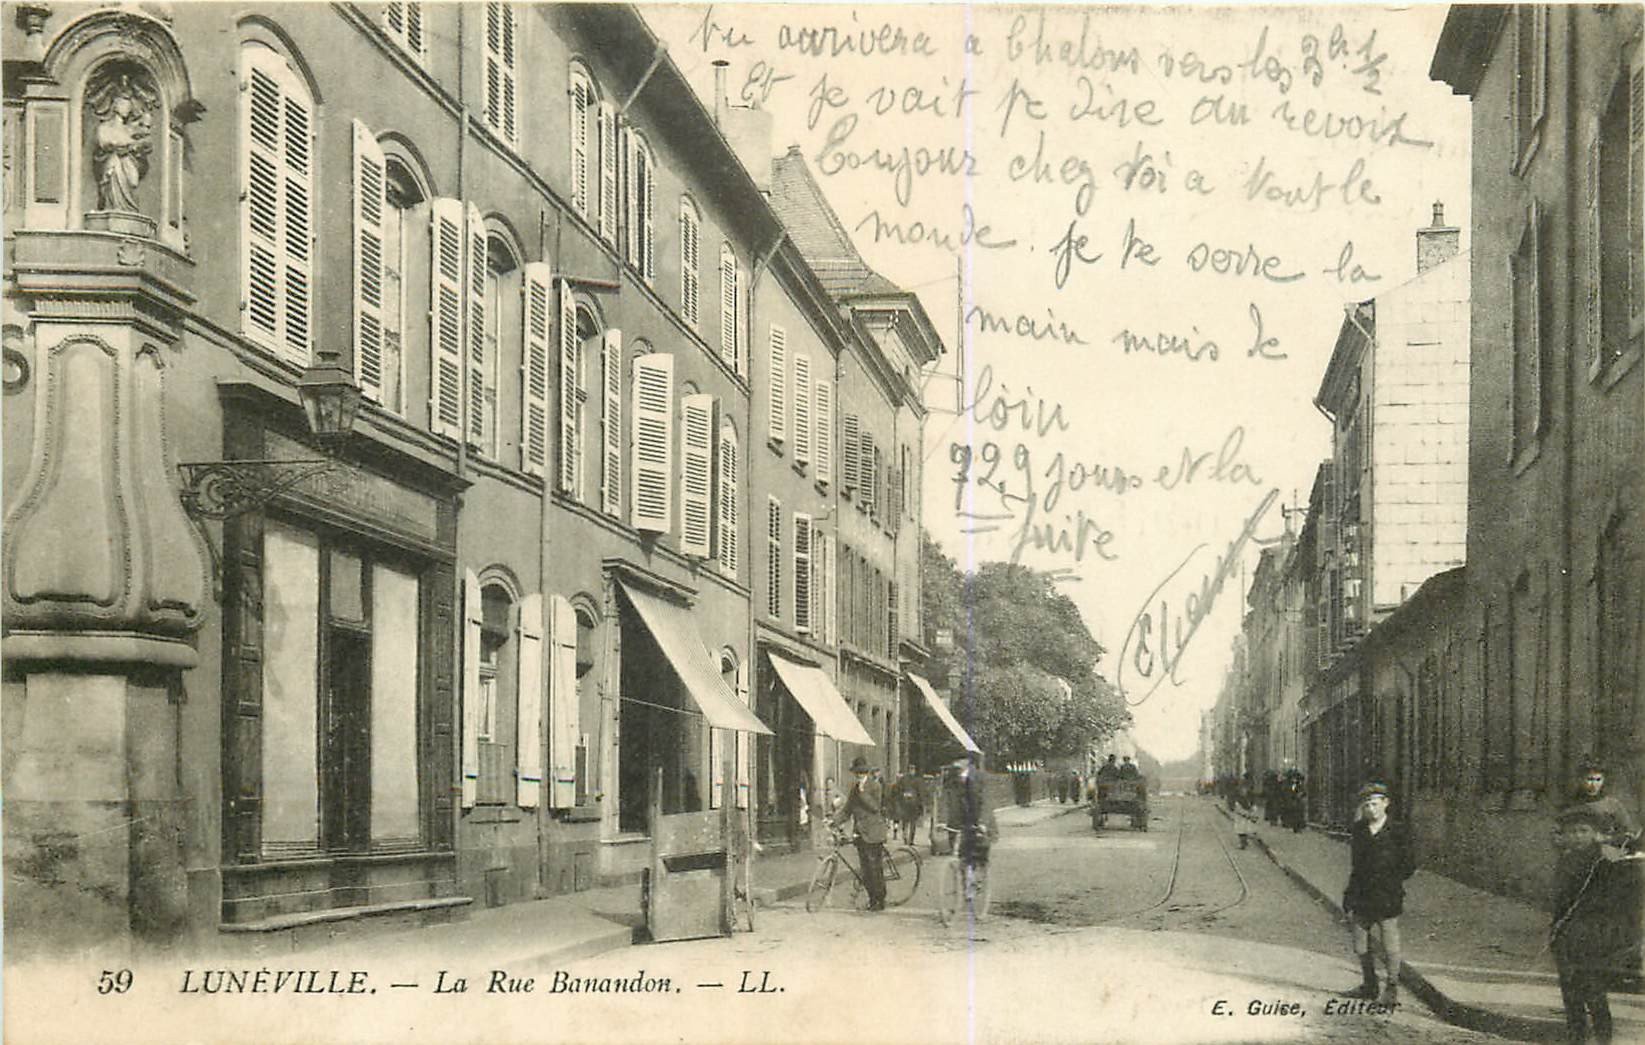 tu arrivera a Chalons vers les 3h 1/2
Et je vait te dire au revoir
Toujour chez toi a tout le
monde. je te serre la
main mais de
loin
729 jours et la
fuite
59 LUNÉVILLE. — La Rue Banandon. — LL.
E. Guise, Éditeur